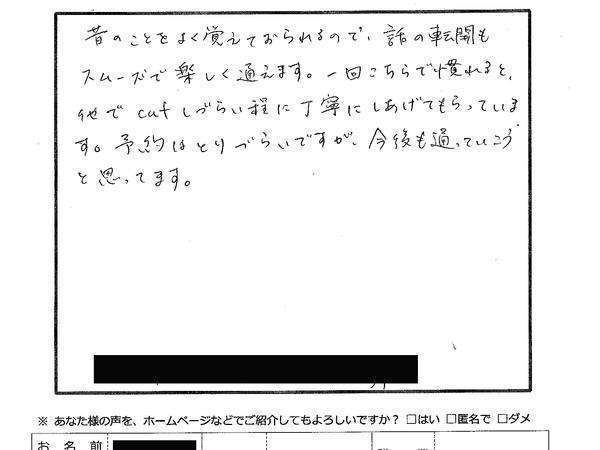 昔のことをよく覚えておられるので、話の転開も
スムーズで楽しく通えます。一回こちらで慣れると、
他でcutしづらい程に丁寧にしあげてもらっていま
す。予約はとりづらいですが、今後も通っていこう
と思ってます。
※ あなた様の声を、ホームページなどでご紹介してもよろしいですか？ □はい □匿名で □ダメ
お 名 前